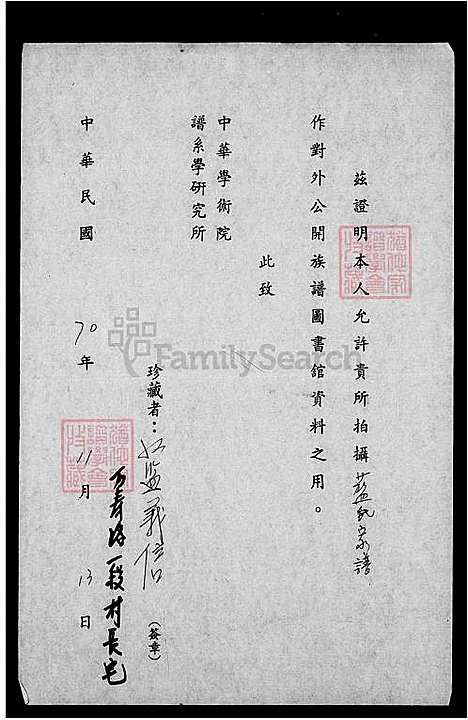 茲證明本人允許貴所拍攝藍氏宗譜
作對外公開族譜圖書館資料之用。
此致
中華學術院
譜系學研究所
珍藏者：江藍義信
(簽章)
段村長宅
中華民國 70年 11月 13日
FamilySearch